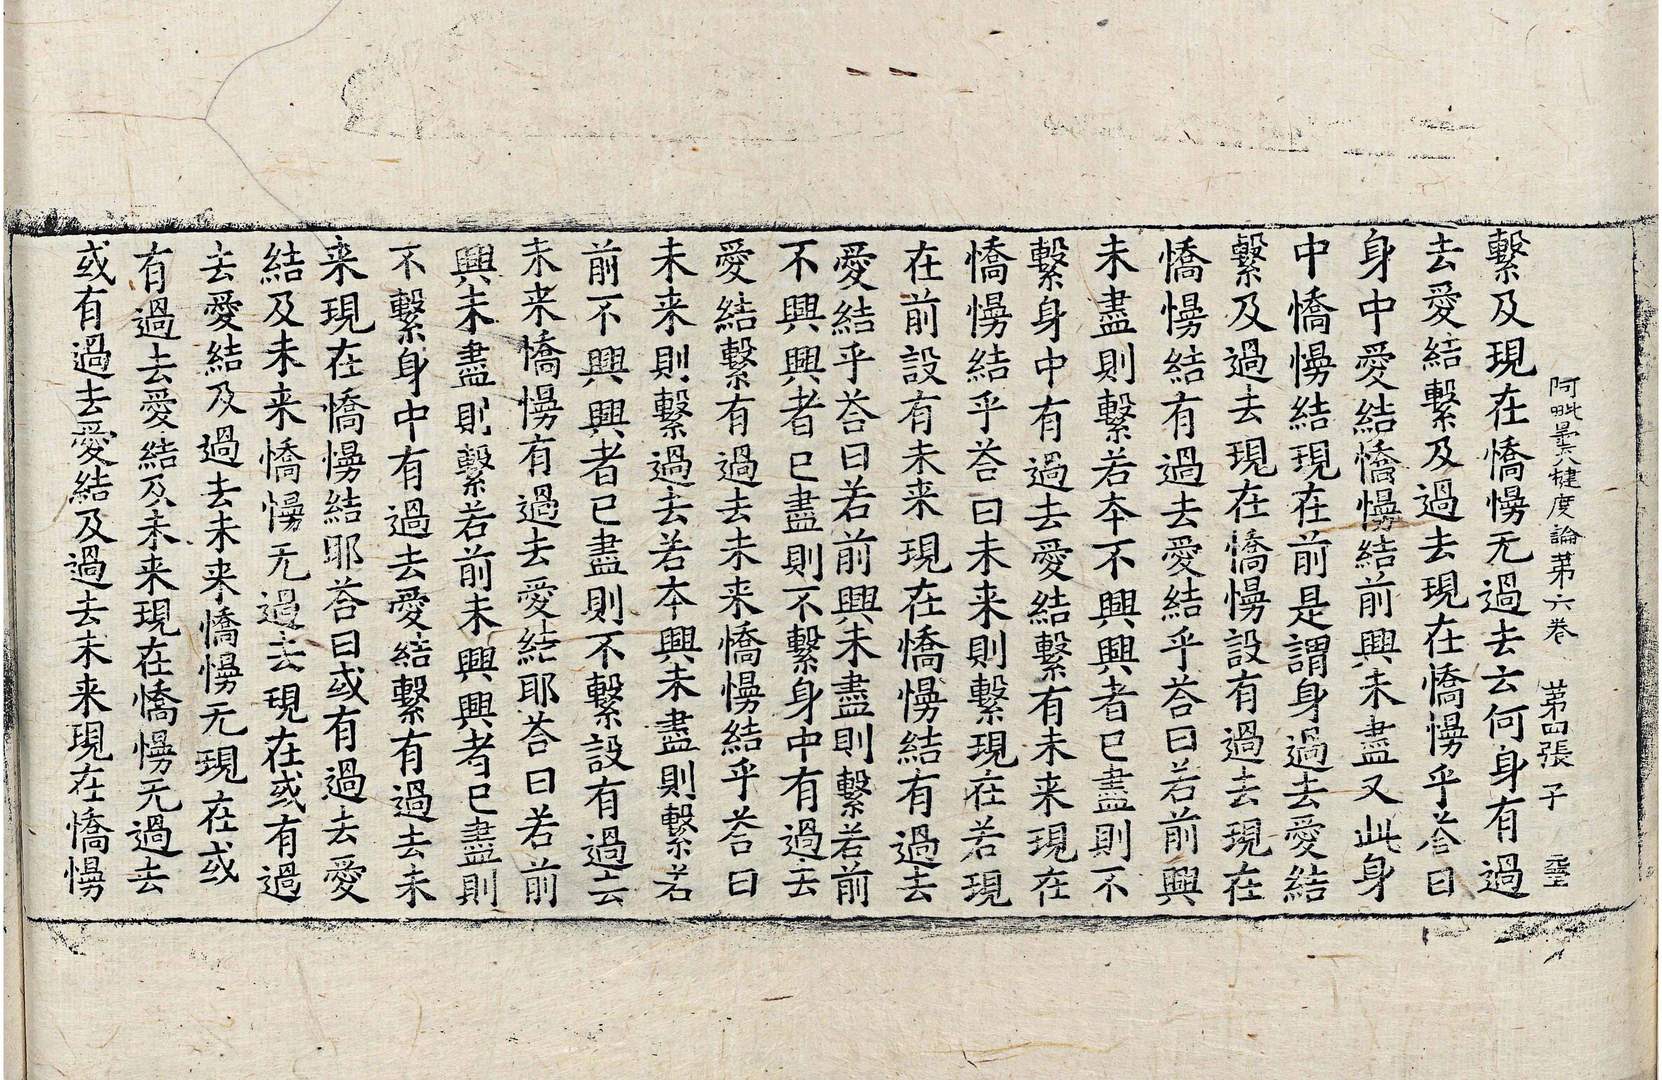 阿毗曇揵度論第六卷 第四張 子
繫及現在憍慢无過去云何身有過
去愛結繫及過去現在憍慢乎荅曰
身中愛結憍慢結前興未盡又此身
中憍慢結現在前是謂身過去愛結
繫及過去現在憍慢設有過去現在
憍慢結有過去愛結乎荅曰若前興
未盡則繫若本不興興者已盡則不
繫身中有過去愛結繫有未来現在
憍慢結乎荅曰未来則繫現在若現
在前設有未来現在憍慢結有過去
愛結乎荅曰若前興未盡則繫若前
不興興者已盡則不繫身中有過去
愛結繫有過去未来憍慢結乎荅曰
未来則繫過去若本興未盡則繫若
前不興興者已盡則不繫設有過去
未来憍慢有過去愛結耶荅曰若前
興未盡則繫若前未興興者已盡則
不繫身中有過去愛結繫有過去未
来現在憍慢結耶荅曰或有過去愛
結及未来憍慢无過去現在或有過
去愛結及過去未来憍慢无現在或
有過去愛結及未来現在憍慢无過去
或有過去愛結及過去未来現在憍慢